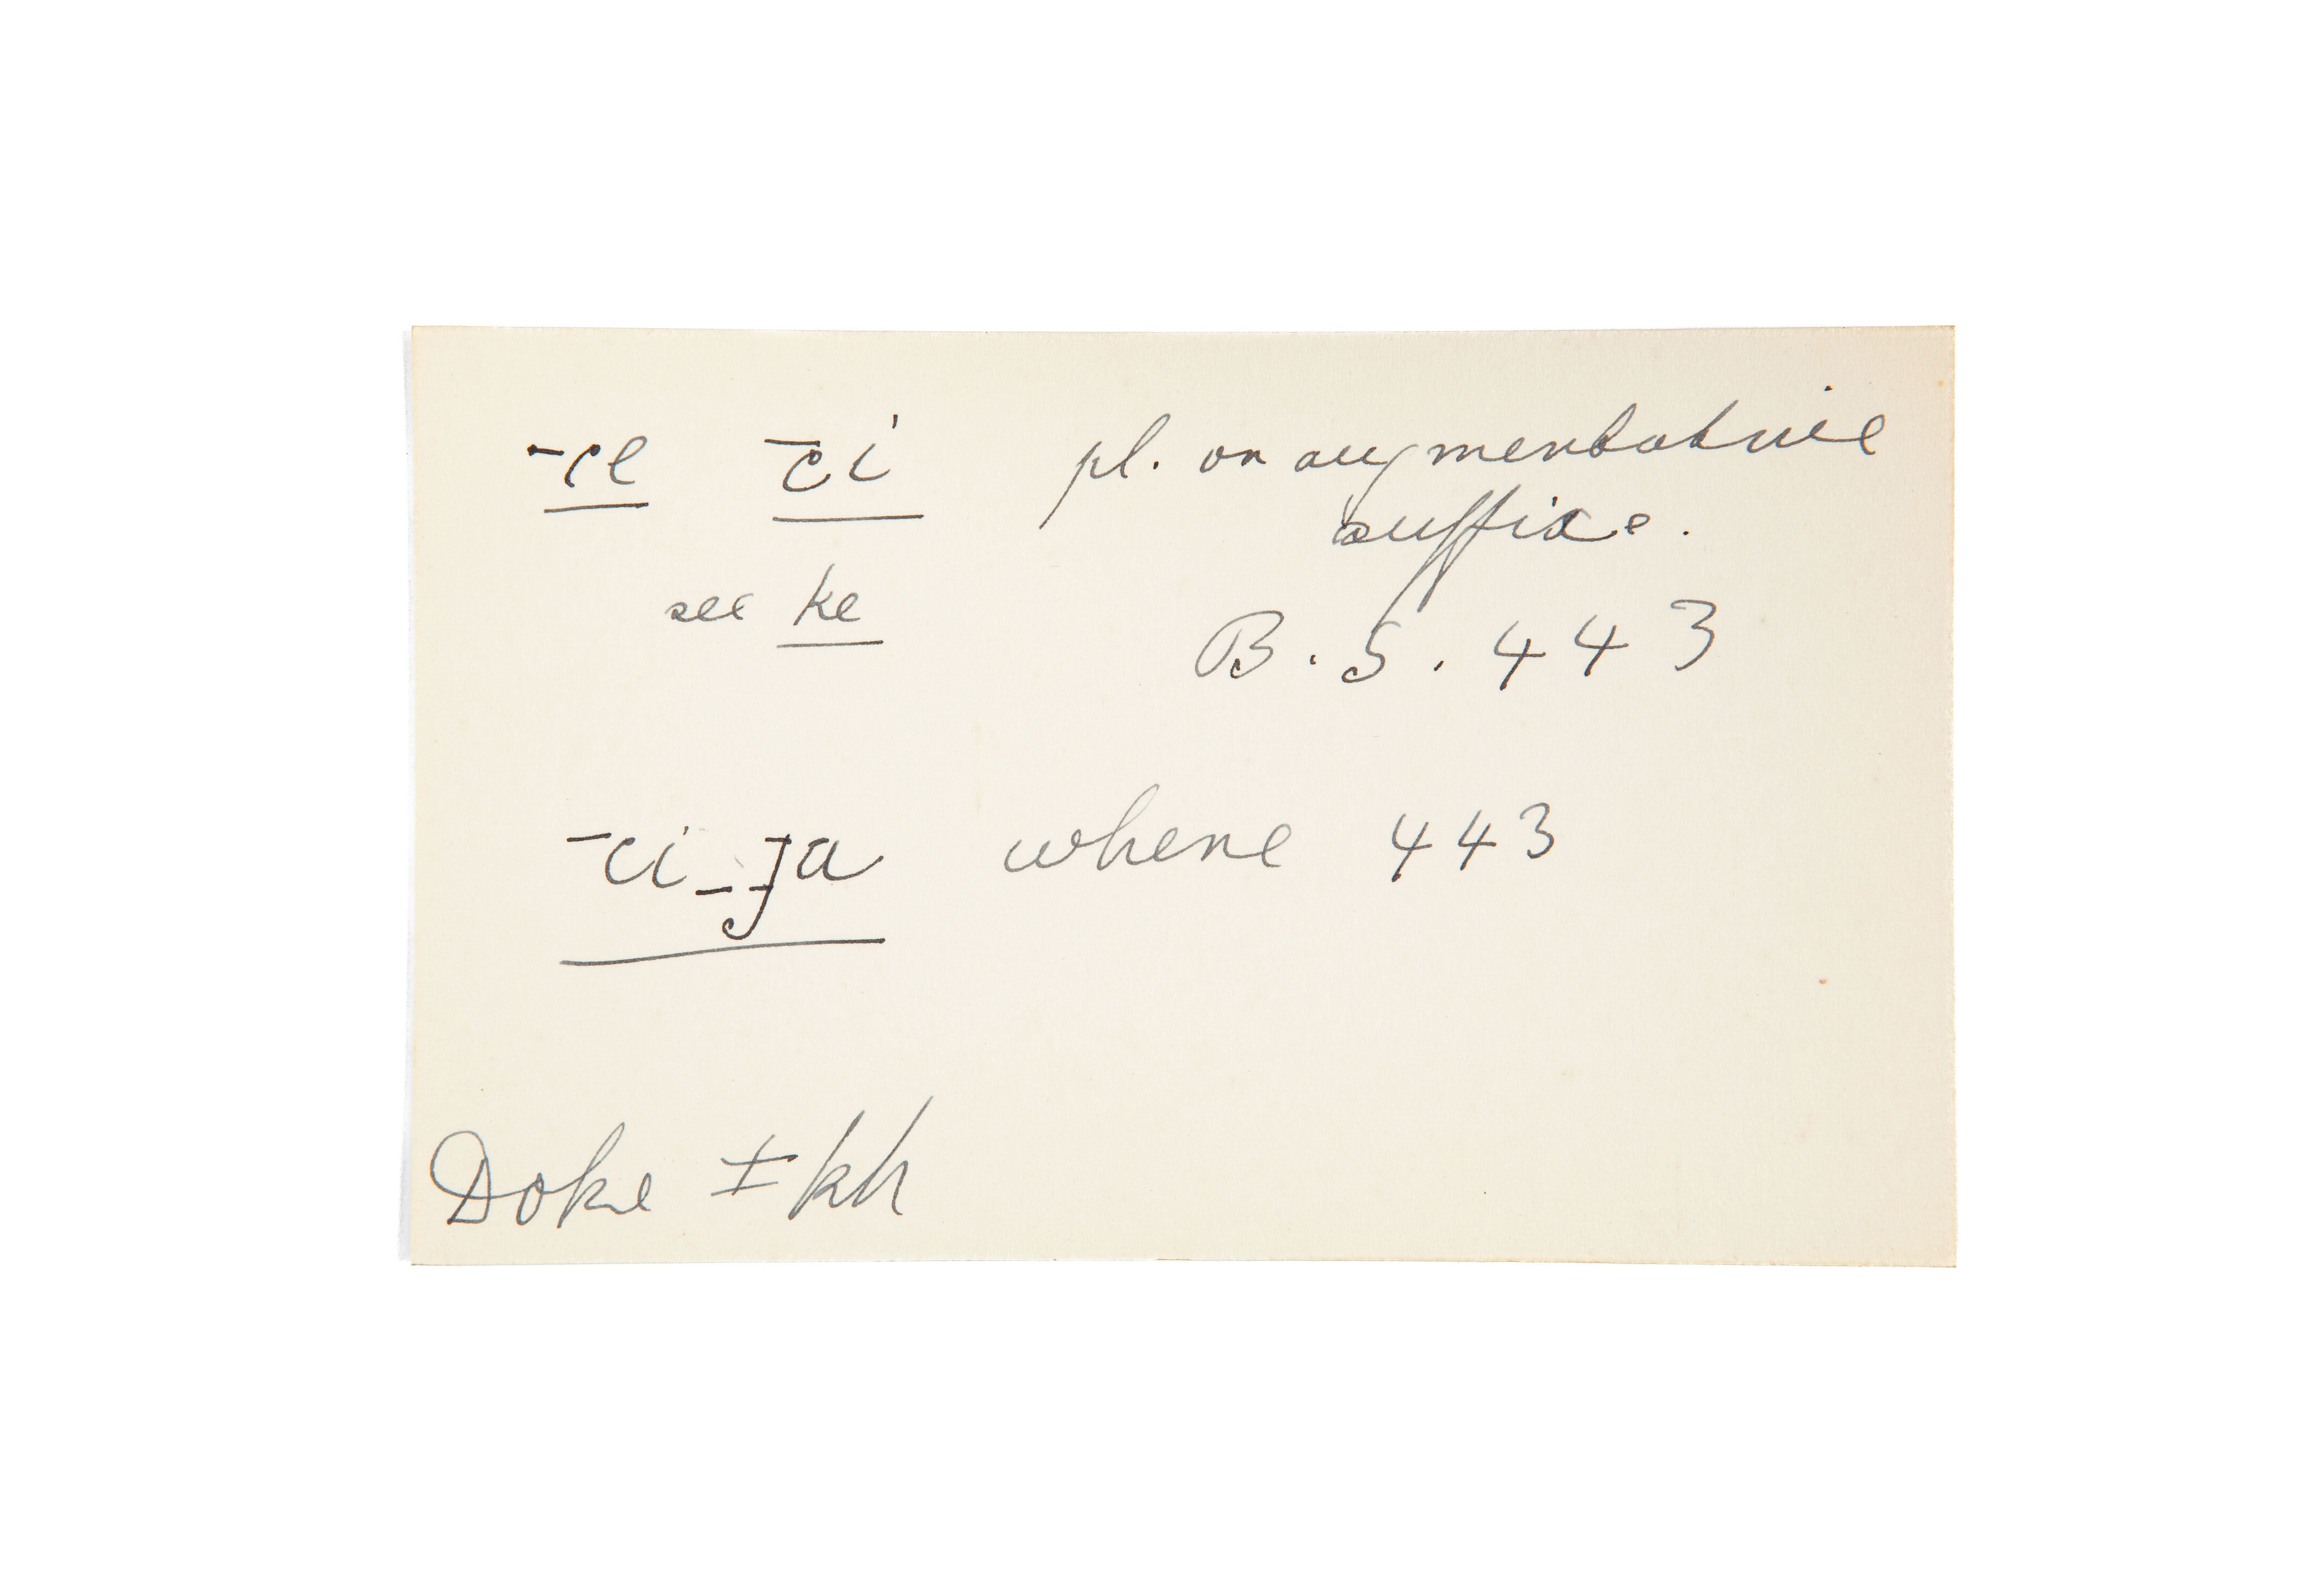 -ce -ci pl. or augmentative
suffixe.
see ke B.S. 443
-ci_ɟa where 443
Doke ǂkh